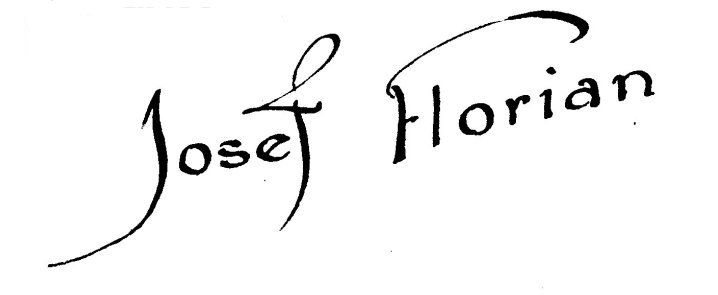 Josef Florian